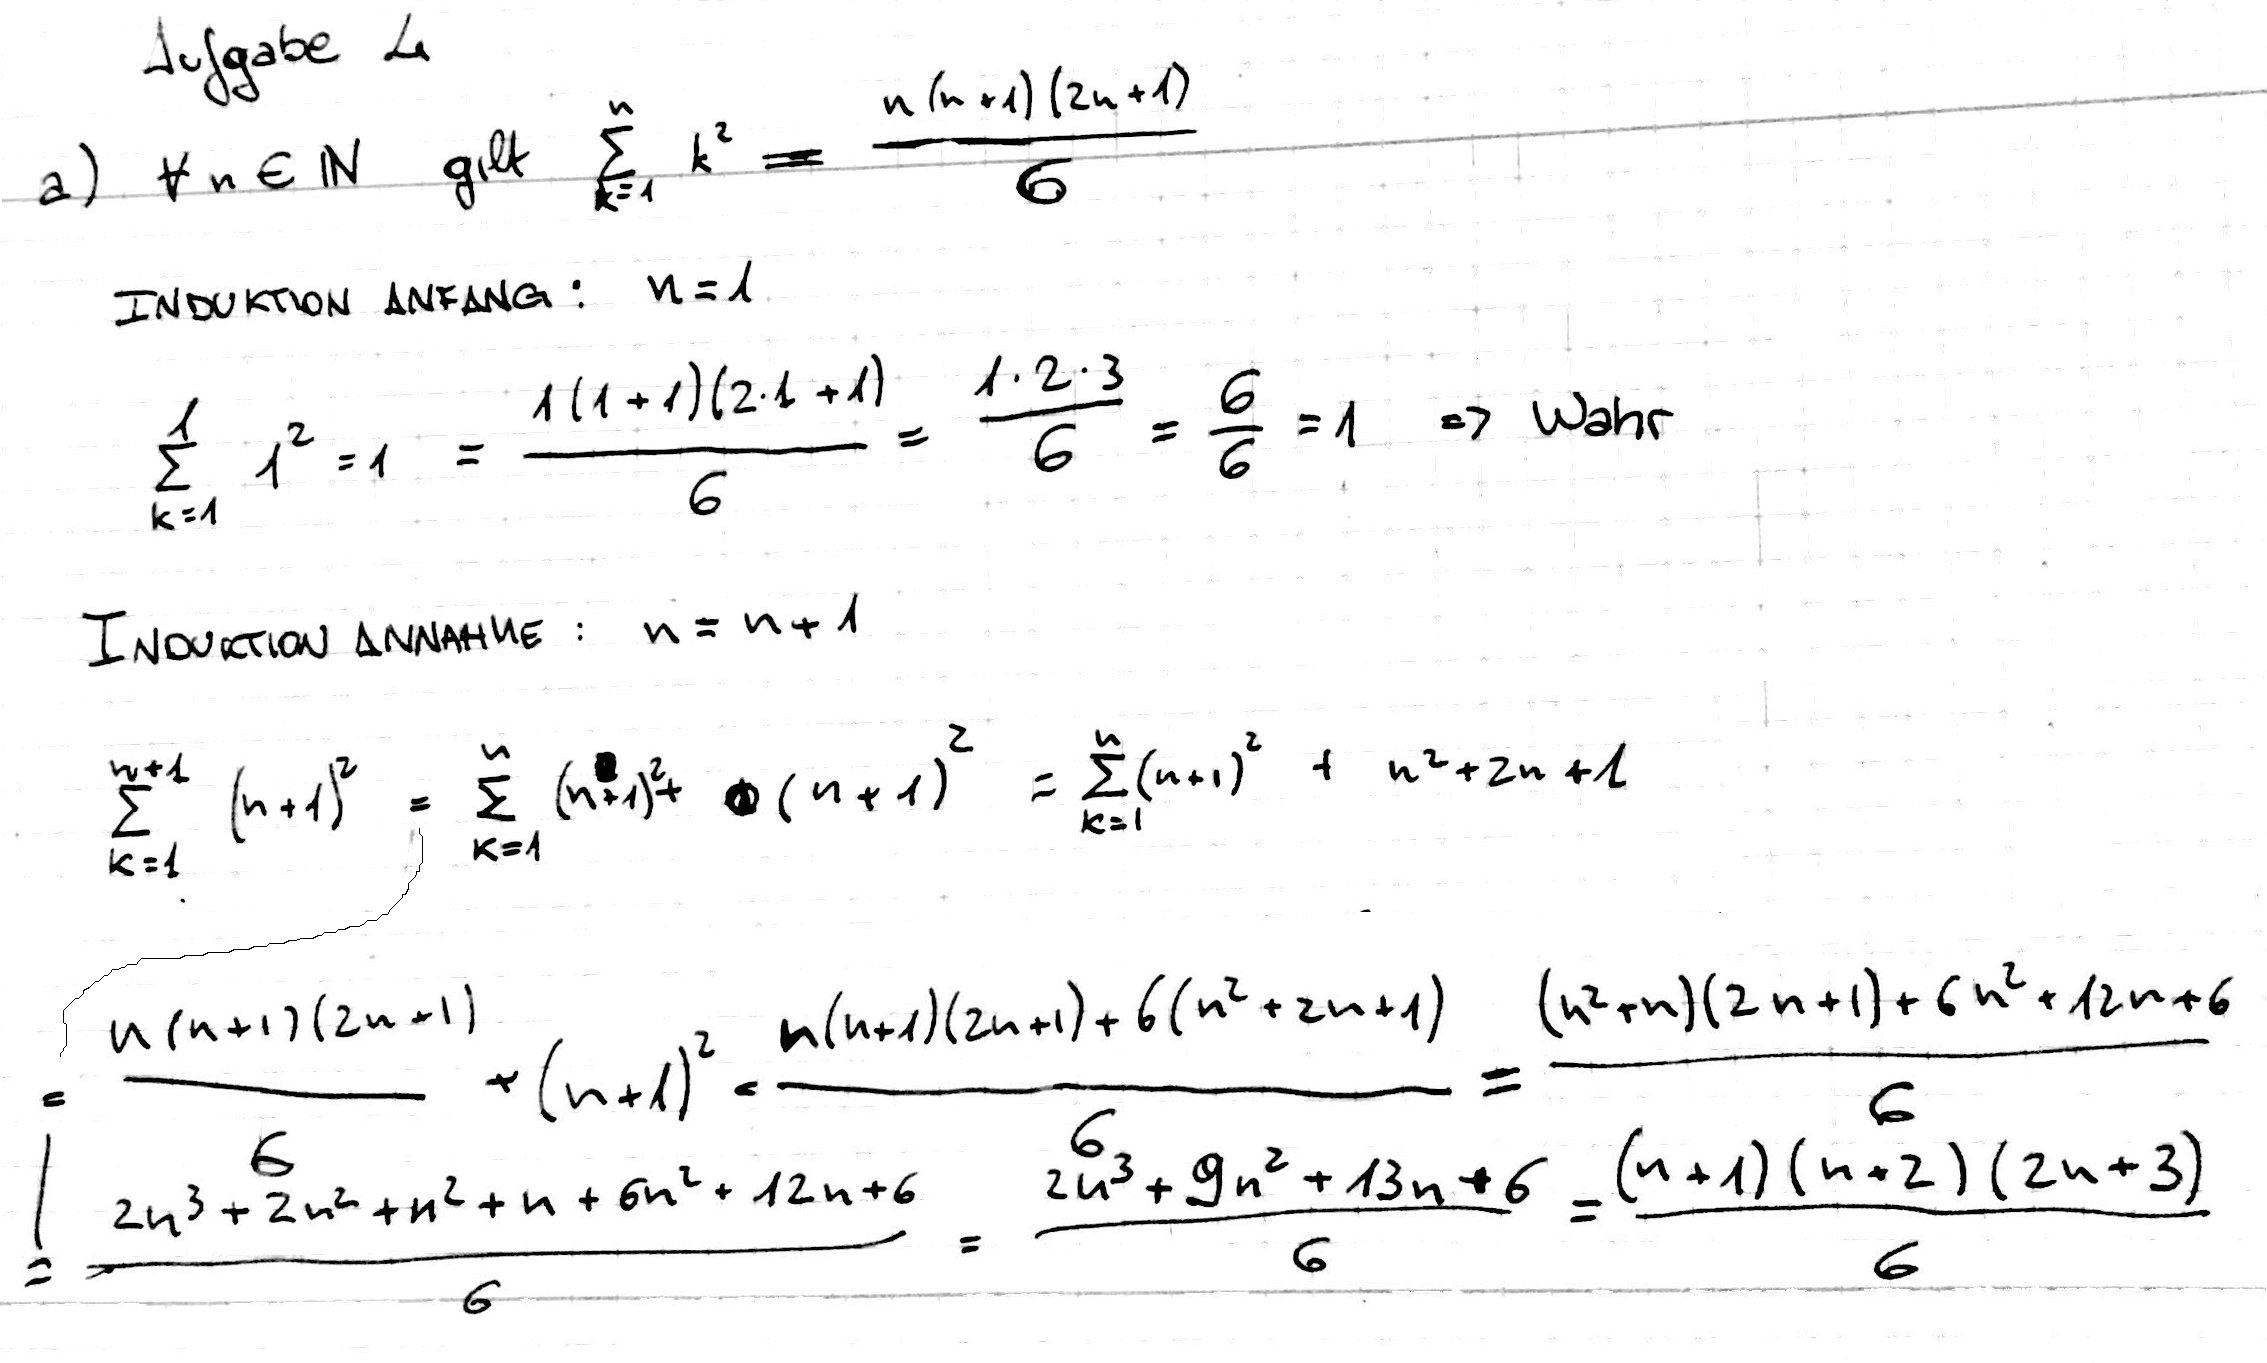 Aufgabe 4
a) ∀ n ∈ ℕ gilt ∑_{k=1}^{n} k² = n(n+1)(2n+1) / 6
INDUKTION ANFANG: n=1
∑_{k=1}^{1} 1² = 1 = 1(1+1)(2·1+1) / 6 = 1·2·3 / 6 = 6/6 = 1 => Wahr
INDUKTION ANNAHME: n = n+1
∑_{k=1}^{n+1} (n+1)² = ∑_{k=1}^{n} (n+1)² + (n+1)² = ∑_{k=1}^{n} (n+1)² + n²+2n+1
= n(n+1)(2n+1) / 6 + (n+1)² = n(n+1)(2n+1)+6(n²+2n+1) / 6 = (n²+n)(2n+1)+6n²+12n+6 / 6
= 2n³+2n²+n²+n+6n²+12n+6 / 6 = 2n³+9n²+13n+6 / 6 = (n+1)(n+2)(2n+3) / 6